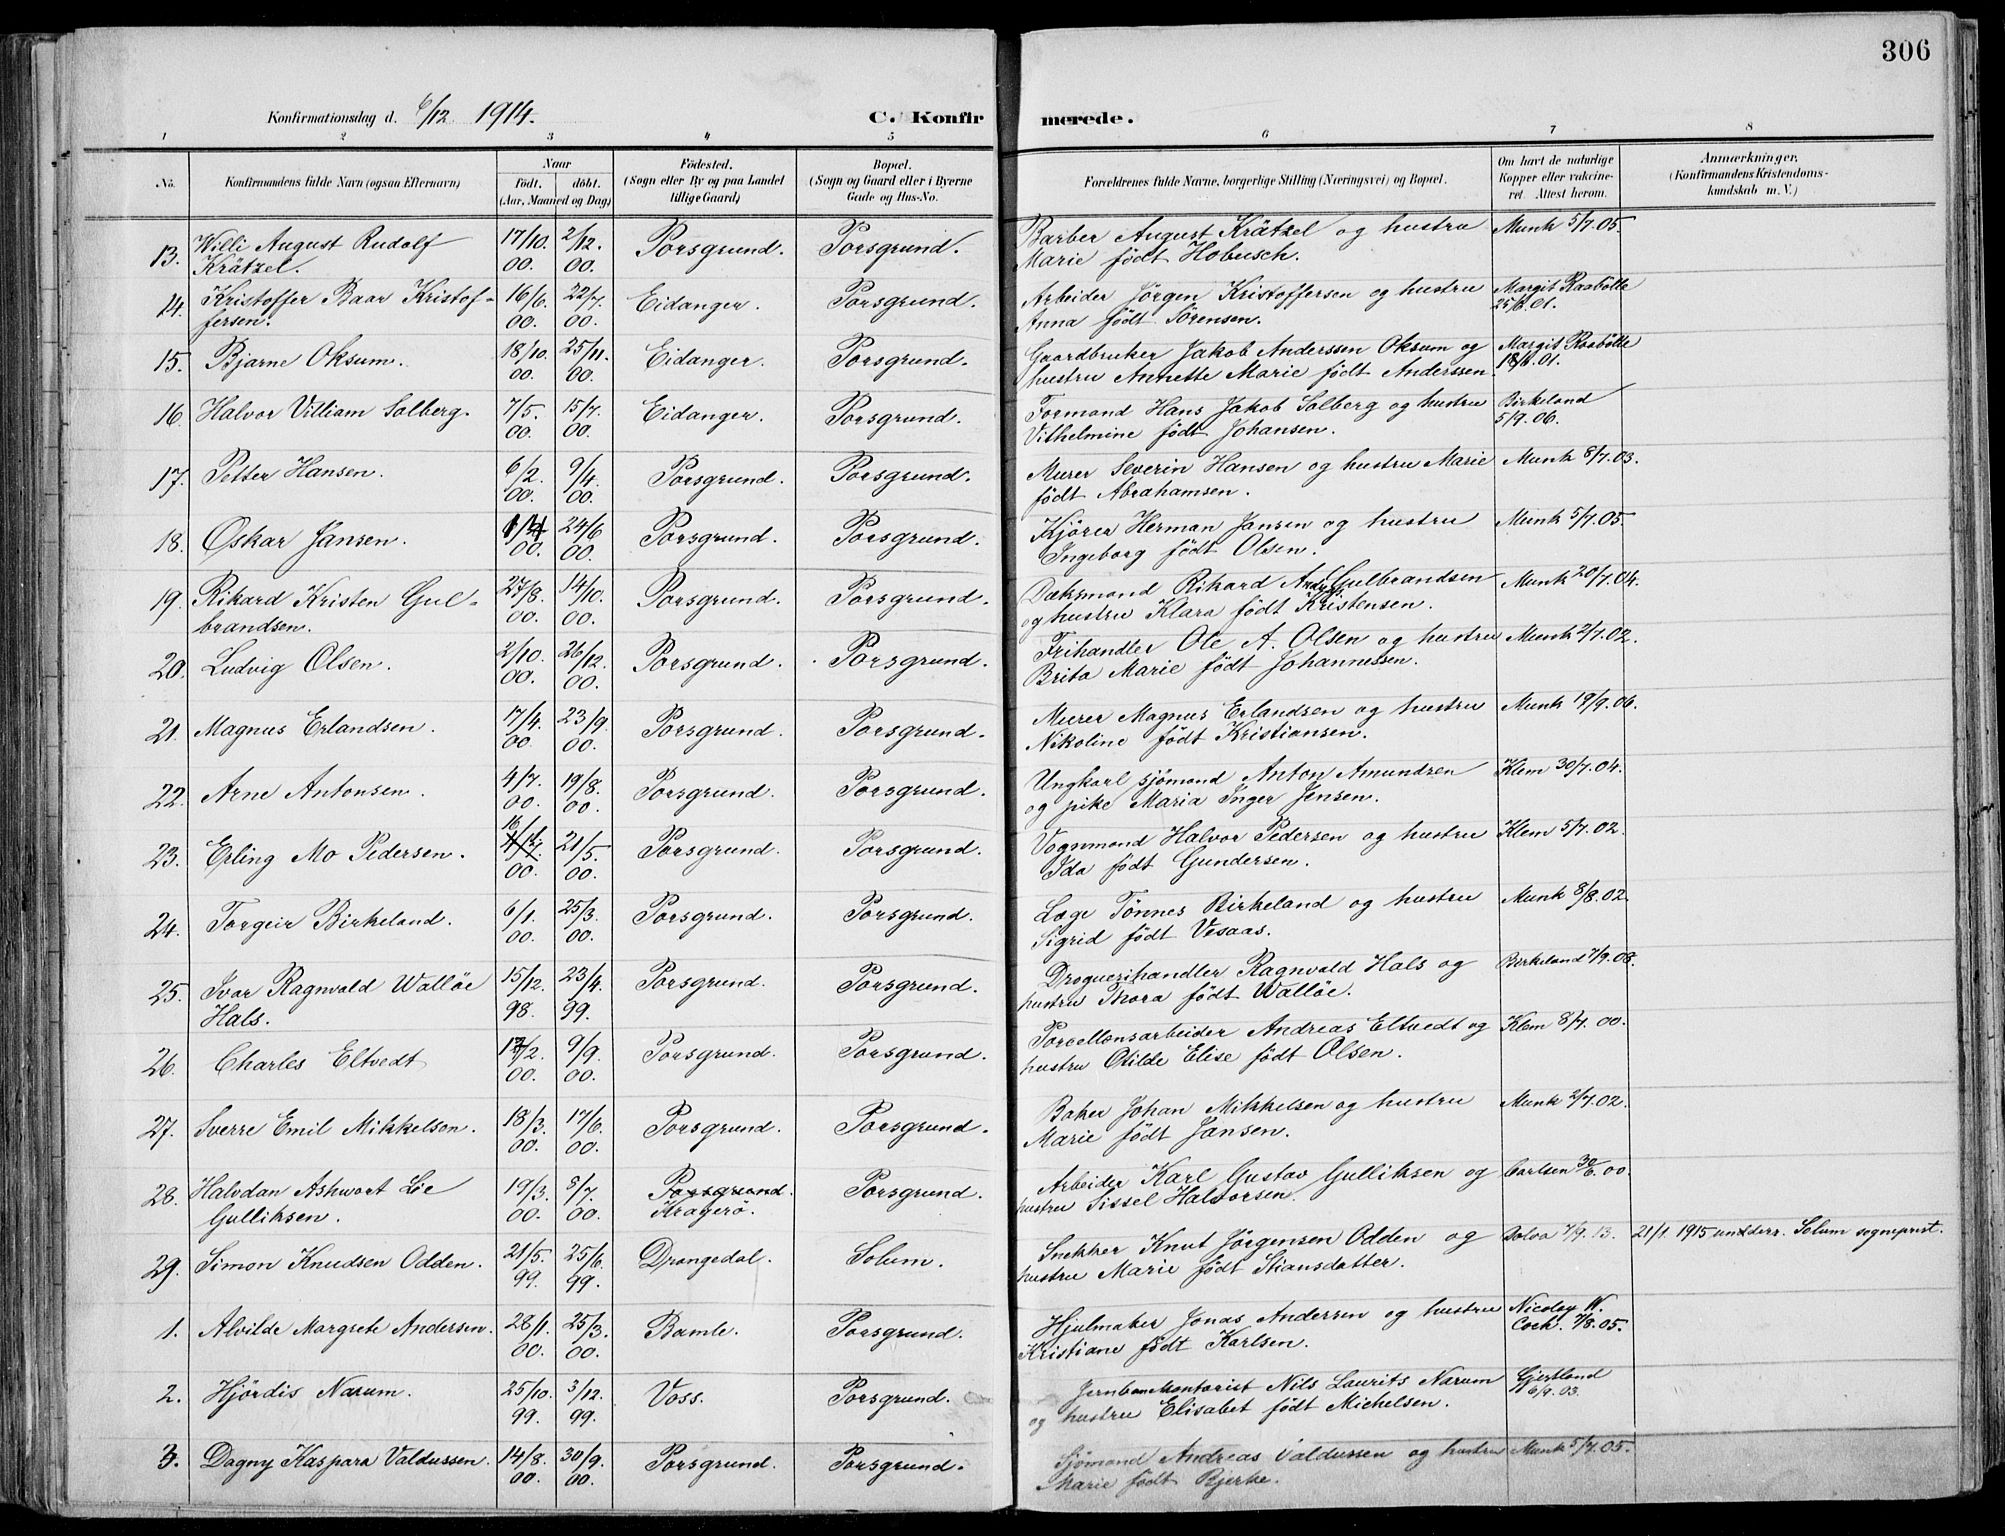 306
Konfirmationsdag d. 6/12 1914.
C. Konfirmerede.
1 2 3 4 5 6 7 8
No.
Konfirmandens fulde Navn (ogsaa Efternavn)
Naar
födt. döbt.
(Aar, Maaned og Dag)
Födested.
(Sogn eller By og paa Landet
tillige Gaard)
Bopæl.
(Sogn og Gaard eller i Byerne
Gade og Hus-No.
Forældrenes fulde Navne, borgerlige Stilling (Næringsvei) og Bopæl.
Om havt de naturlige
Kopper eller vakcine-
ret. Attest herom.
Anmærkninger,
(Konfirmandens Kristendoms-
kundskab m. V.)
13. Willi August Rudolf 17/10. 2/12. Porsgrund. Porsgrund. Barber August Krätzel og hustru Munk 5/7.05.
Krätzel. 00. 00. Marie födt Hobusch.
14. Kristoffer Baar Kristof- 16/6. 22/7. Eidanger. Porsgrund. Arbeider Jörgen Kristoffersen og hustru Margit Raabölle
fersen. 00. 00. Anna födt Sörensen. 25/6.01.
15. Bjarne Oksum. 18/10. 25/11. Eidanger. Porsgrund. Gaardbruker Jakob Anderssen Oksum og Margit Raabölle
00. 00. hustru Annette Marie födt Anderssen. 18/6.01.
16. Halvor Villiam Solberg. 7/5. 15/7. Eidanger. Porsgrund. Formand Hans Jakob Solberg og hustru Birkeland
00. 00. Vilhelmine födt Johansen. 5/9.06.
17. Petter Hansen. 6/2. 9/4. Porsgrund. Porsgrund. Murer Severin Hansen og hustru Marie Munk 8/7.03.
00. 00. födt Abrahamsen.
18. Oskar Jansen. 24/6 Porsgrund. Porsgrund. Kjörer Herman Jansen og hustru Munk 5/7.05.
00. 00. Ingeborg födt Olsen.
19. Rikard Kristen Gul- 27/8. 14/10. Porsgrund. Porsgrund. Dæksmand Rikard Andr. Gulbrandsen Munk 20/7.04.
brandsen. 00. 00. og hustru Klara födt Kristensen.
20. Ludvig Olsen. 2/10. 26/12. Porsgrund. Porsgrund. Frihandler Ole A. Olsen og hustru Munk 2/7.02.
00. 00. Brita Marie födt Johannessen.
21. Magnus Erlandsen. 17/4. 23/9. Porsgrund. Porsgrund. Murer Magnus Erlandsen og hustru Munk 19/9.06.
00. 00. Nikoline födt Kristiansen.
22. Arne Antonsen. 4/7. 19/8. Porsgrund. Porsgrund. Ungkarl sjömand Anton Amundsen Klem 30/7.04.
00. 00. og pike Maria Inger Jensen.
23. Erling Mo Pedersen. 21/5. Porsgrund. Porsgrund. Vognmand Halvor Pedersen og hustru Klem 5/7.02.
00. 00. Ida födt Gundersen.
24. Torgeir Birkeland. 6/1. 25/3. Porsgrund. Porsgrund. Læge Tönnes Birkeland og hustru Munk 8/8.02.
00. 00. Sigrid födt Vesaas.
25. Ivar Ragnvald Wallöe 15/12. 23/4. Porsgrund. Porsgrund. Droguerihandler Ragnvald Hals og Birkeland 7/9.08.
Hals. 98. 99. hustru Thora födt Wallöe.
26. Charles Eltvedt 9/9. Porsgrund. Porsgrund. Porcellænsarbeider Andreas Eltvedt og Klem 8/7.00.
00. 00. hustru Otilde Elise födt Olsen.
27. Sverre Emil Mikkelsen. 18/3. 17/6. Porsgrund. Porsgrund. Baker Johan Mikkelsen og hustru Munk 2/7.02.
00. 00. Marie födt Jansen.
28. Halvdan Ashwort Lie 19/3. 8/7. Porsgrund. Porsgrund. Arbeider Karl Gustav Gulliksen og Carlsen 30/6.00.
Gulliksen. 00. 00. Kragerö. hustru Sissel Halvorsen.
29. Simon Knudsen Odden. 21/5. 25/6. Drangedal. Solum. Snekker Knut Jörgensen Odden og Dolva 7/9.13. 21/1 1915 underr. Solum sogneprest.
99. 99. hustru Marie födt Stiansdatter.
1. Alvilde Margrete Andersen. 28/1. 25/3. Bamle. Porsgrund. Hjulmaker Jonas Andersen og hustru Nicolay W.
00. 00. Kristiane födt Karlsen. Cock. 7/8.05.
2. Hjördis Narum. 25/10. 3/12. Voss. Porsgrund. Jernbanekontorist Nils Laurits Narum Gjertland
99. 99. og hustru Elisabet födt Michelsen. 6/9.03.
3. Dagny Kaspara Valdussen. 14/8. 30/9. Porsgrund. Porsgrund. Sjömand Andreas Valdussen og hustru Munk 5/7.05.
00. 00. Marie födt Bjerke.